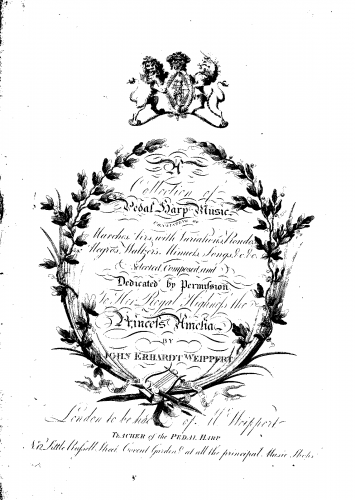 A
Collection of
Pedal Harp Music
CONSISTING OF
Marches, Airs, with Variations, Rondos
Waltzes, Minuets, Songs, &c. &c.
Selected Composed, and
Dedicated by Permission
To Her Royal Highness the
Princess Amelia
BY
JOHN ERHARDT WEIPPERT
London to be had of Mr. Weippert
TEACHER of the PEDAL HARP
Little Russell Street Covent Garden & at all the principal Music Shops